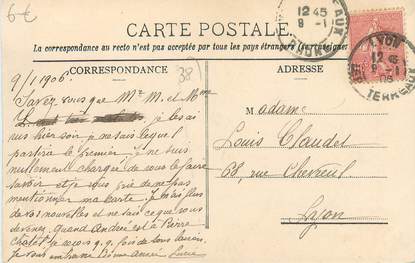 6€
12 45
9 -1
LYON
12 45
9 -1
06
TERREAUX
CARTE POSTALE
La correspondance au recto n'est pas acceptée par tous les pays étrangers
CORRESPONDANCE
ADRESSE
38
9/1 1906.
Savez vous que Mr M. et Mme
je les ai
vus hier soir, je ne sais lequel
partira le premier, je ne suis
nullement chargée de vous le faire
savoir et je vous prie de ne pas
mentionner ma carte. Je n'ai plus
de vos nouvelles et ne sais ce que vous
devenez. Quand André est à Pierre
Chatel je vois q.q. fois
je vous
Madame
Louis Claudet
68, rue Chevreul
Lyon